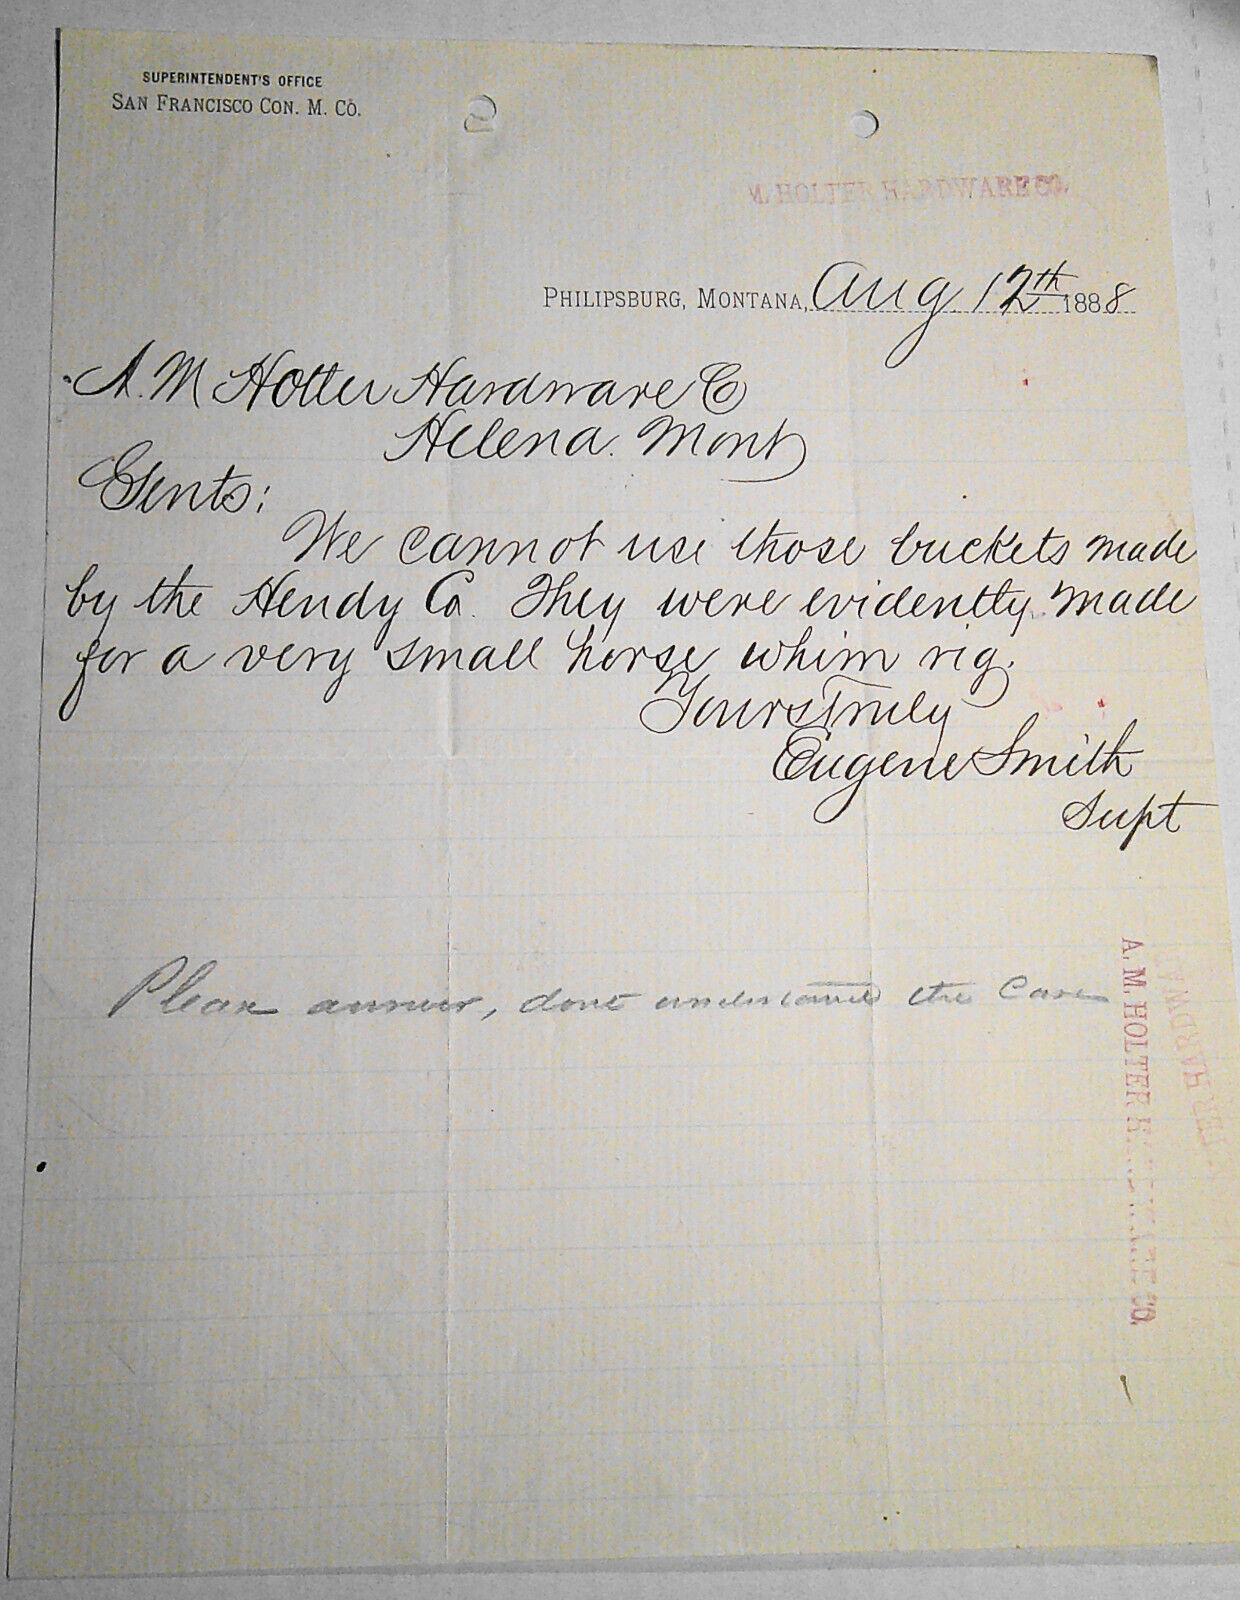 SUPERINTENDENT'S OFFICE
SAN FRANCISCO CON. M. CO.
M. HOLTER HARDWARE CO.
PHILIPSBURG, MONTANA, Aug. 12th 1888
A. M Holter Hardware Co
Helena. Mont
Gents:
We cannot use those buckets made
by the Hendy Co. They were evidently made
for a very small horse whim rig.
Yours Truly
Eugene Smith
Supt
Please answer, dont understand the Case
A. M. HOLTER HARDWARE CO.